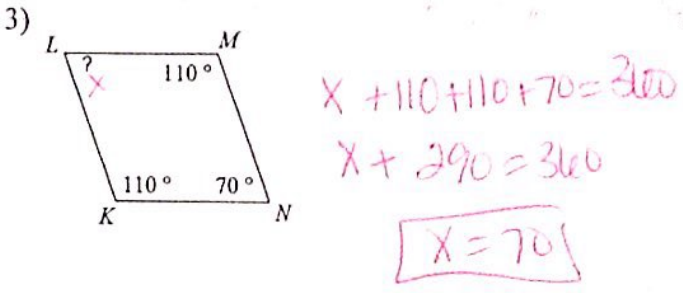 3)
L M
?
x
110°
110° 70°
K N
x + 110 + 110 + 70 = 360
x + 290 = 360
x = 70